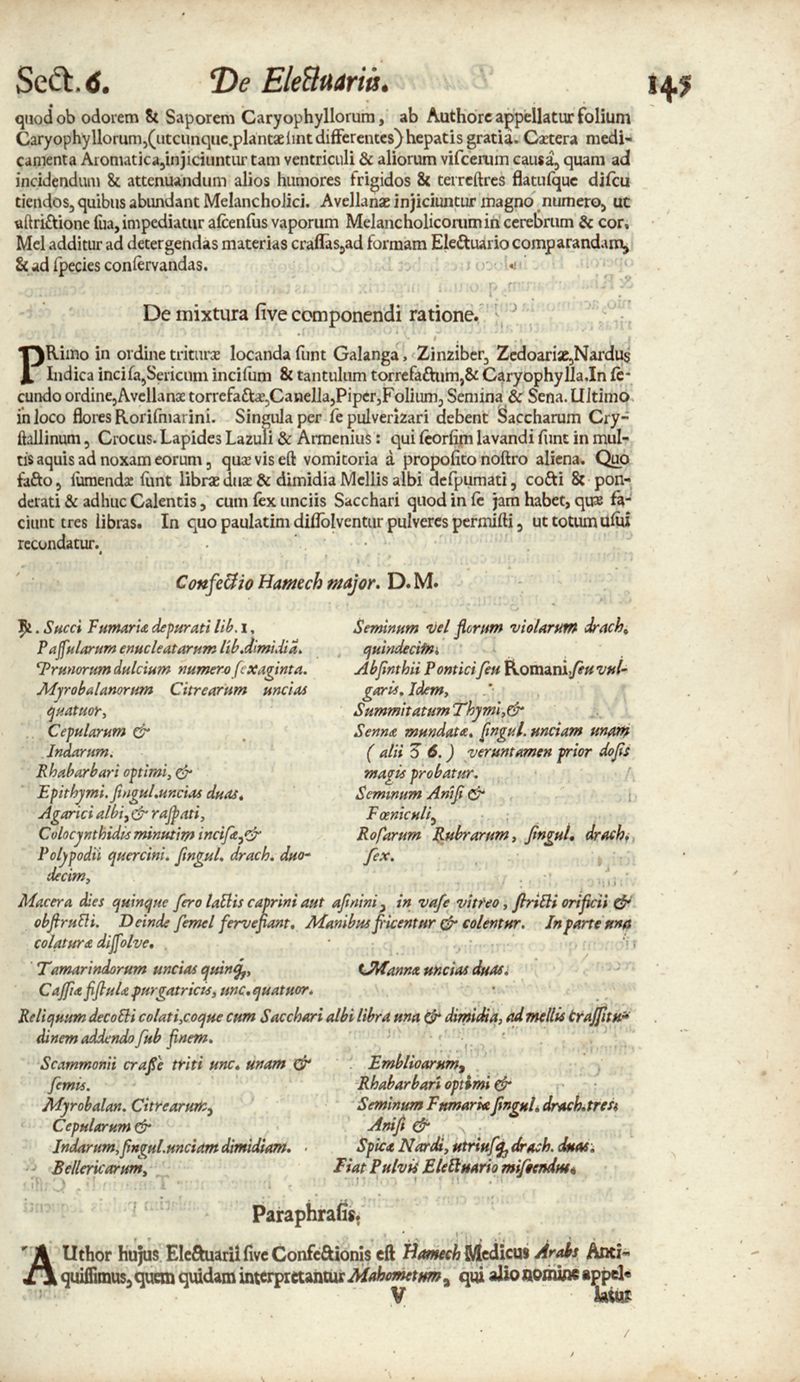 Sect. 6. De Electuariis. 145
quod ob odorem & Saporem Caryophyllorum, ab Authore appellatur folium
Caryophyllorum,(utcunque.plantæ sint differentes) hepatis gratia. Cætera medi-
camenta Aromatica,injiciuntur tam ventriculi & aliorum viscerum causâ, quam ad
incidendum & attenuandum alios humores frigidos & terrestres flatusque discu
tiendos, quibus abundant Melancholici. Avellanæ injiciuntur magno numero, ut
astrictione sua, impediatur ascensus vaporum Melancholicorum in cerebrum & cor.
Mel additur ad detergendas materias crassas,ad formam Electuario comparandam,
& ad species conservandas.
De mixtura sive componendi ratione.
PRimo in ordine trituræ locanda sunt Galanga, Zinziber, Zedoariæ,Nardus
Indica incisa,Sericum incisum & tantulum torrefactum,& Caryophylla.In se-
cundo ordine,Avellanæ torrefactæ,Canella,Piper,Folium, Semina & Sena. Ultimo
in loco flores Rorismarini. Singula per se pulverizari debent Saccharum Cry-
stallinum, Crocus. Lapides Lazuli & Armenius: qui seorsim lavandi sunt in mul-
tis aquis ad noxam eorum, quæ vis est vomitoria à proposito nostro aliena. Quo
facto, sumendæ sunt libræ duæ & dimidia Mellis albi despumati, cocti & pon-
derati & adhuc Calentis, cum sex unciis Sacchari quod in se jam habet, quæ fa-
ciunt tres libras. In quo paulatim dissolventur pulveres permisti, ut totum usui
recondatur.
Confectio Hamech major. D.M.
℞. Succi Fumariæ depurati lib. 1.
Passularum enucleatarum lib.dimidiâ.
Prunorum dulcium numero sexaginta.
Myrobalanorum Citrearum uncias
quatuor,
Cepularum &
Indarum.
Rhabarbari optimi, &
Epithymi. singul.uncias duas.
Agarici albi, & raspati,
Colocynthidis minutim incisæ,&
Polypodii quercini. singul. drach. duo-
decim,
Seminum vel florum violarum drach.
quindecim.
Absinthii Pontici seu Romani.seu vul-
garis. Idem,
Summitatum Thymi,&
Sennæ mundatæ. singul. unciam unam
( alii ʒ 6. ) veruntamen prior dosis
magis probatur.
Seminum Anisi &
Fœniculi,
Rosarum Rubrarum, singul. drach.
sex.
Macera dies quinque sero lactis caprini aut asinini, in vase vitreo, stricti orificii &
obstructi. Deinde semel fervefiant. Manibus fricentur & colentur. In parte una
colaturæ dissolve.
Tamarindorum uncias quinq;,
Cassiæ fistulæ purgatricis, unc. quatuor.
Mannæ uncias duas.
Reliquum decocti colati,coque cum Sacchari albi libra una & dimidia, ad mellis crassitu-
dinem addendo sub finem.
Scammonii crasse triti unc. unam &
semis.
Myrobalan. Citrearum,
Cepularum &
Indarum, singul.unciam dimidiam.
Bellericarum,
Emblioarum,
Rhabarbari optimi &
Seminum Fumariæ singul. drach.tres.
Anisi &
Spicæ Nardi, utriusq; drach. duas.
Fiat Pulvis Electuario miscendus.
Paraphrasis.
AUthor hujus Electuarii sive Confectionis est Hamech Medicus Arabs Anti-
quissimus, quem quidam interpretantur Mahometum, qui alio nomine appel-
V latur